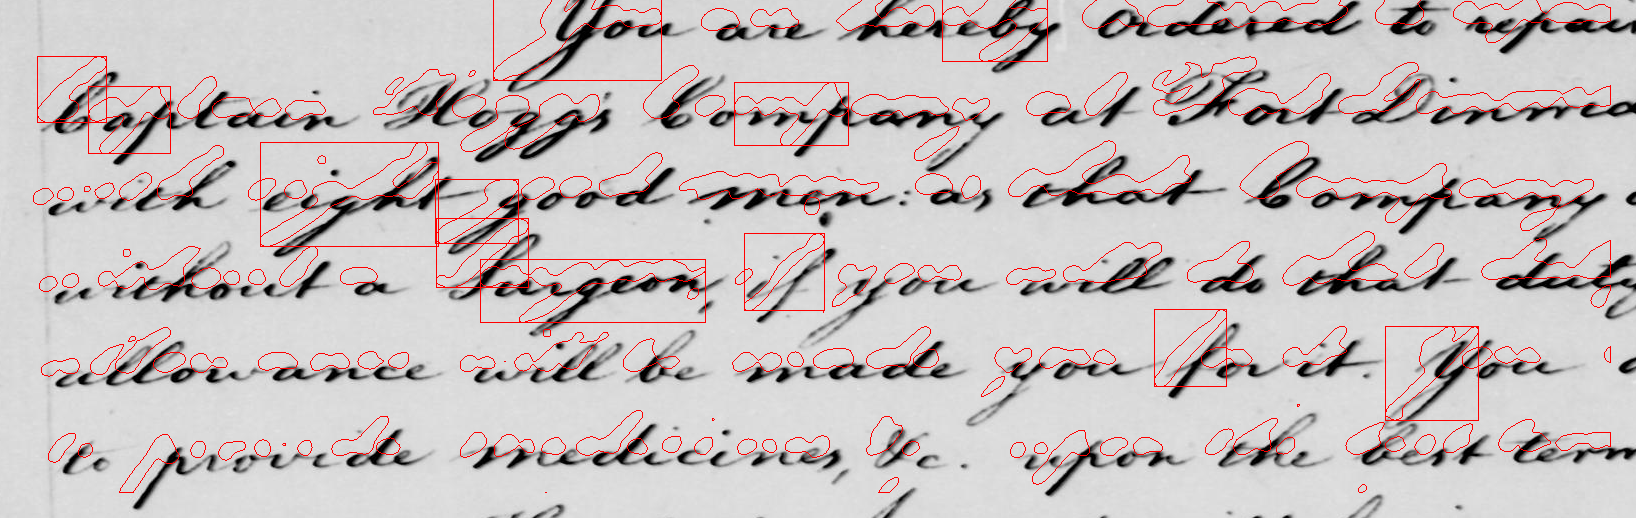 You are hereby ordered to repair
Captain Hogg's Company at Fort Dinwid
with eight good men: as that Company
without a Surgeon, if you will do that duty
allowance will be made you for it. You
to provide medicines, &c. upon the best term